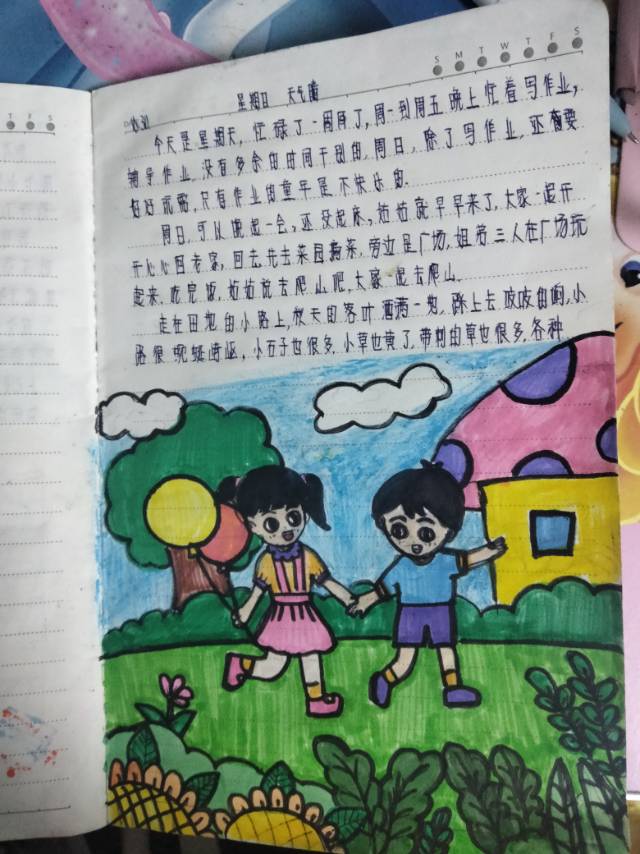 S M T W T F S
星期日 天气晴
今天是星期天，忙碌了一周了，周一到周五晚上忙着写作业，
辅导作业，没有多余的时间干别的，周日，除了写作业，还有要
好好玩，只有作业的童年是不快乐的。
周日，可以晚起一会，还没起床，姑姑就早早来了，大家一起开
开心心回老家，回去先去菜园，旁边是广场，姐弟三人在广场玩
起来，吃完饭，姑姑说去爬山吧，大家一起去爬山。
走在田地的小路上，秋天的落叶洒满一地，踩上去吱吱的响，小
路很蜿蜒崎岖，小石子也很多，小草也黄了，带刺的草也很多，各种